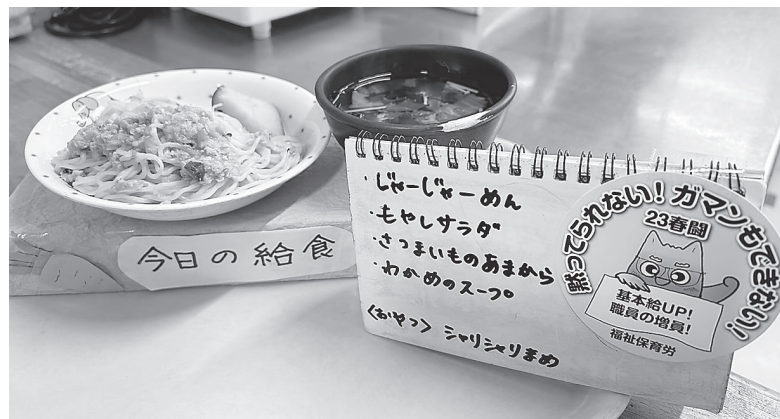 今日の給食
・じゃーじゃーめん
・もやしサラダ
・さつまいものあまから
・わかめのスープ
〈おやつ〉 シャリシャリまめ
黙ってられない！ガマンもできない！
23春闘
基本給UP!
職員の増員!
福祉保育労